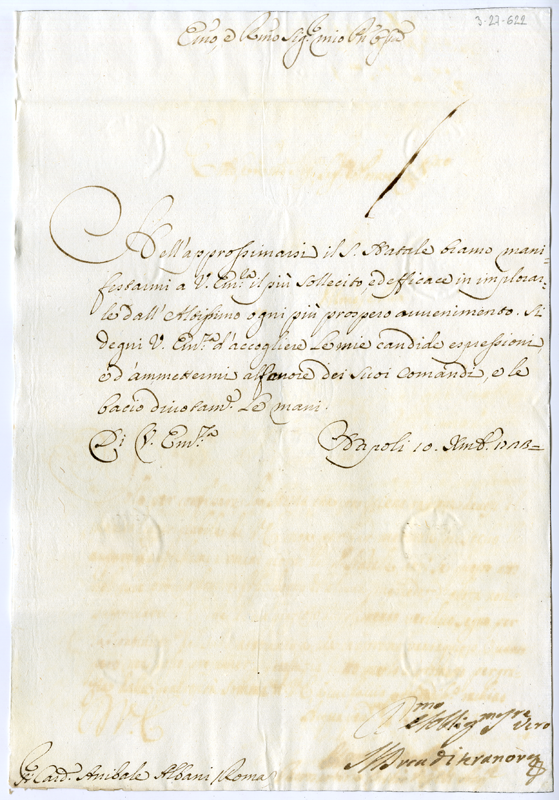 3-27-622
Emo, e Rmo Sig.r mio
Nell'approssimarsi il S. Natale bramo mani=
festarmi a V. Em.za il più sollecito, ed efficace in implorar=
le dall'Altissimo ogni più prospero avvenimento. Si
degni V. Em.za d'accogliere le mie candide espressioni
ed'ammettermi all'onore dei suoi Comandi, e le
bacio divotam.te le mani.
Di V. Em.za Napoli 10. Xmb.e
Sig. Card. Anibale Albani Roma